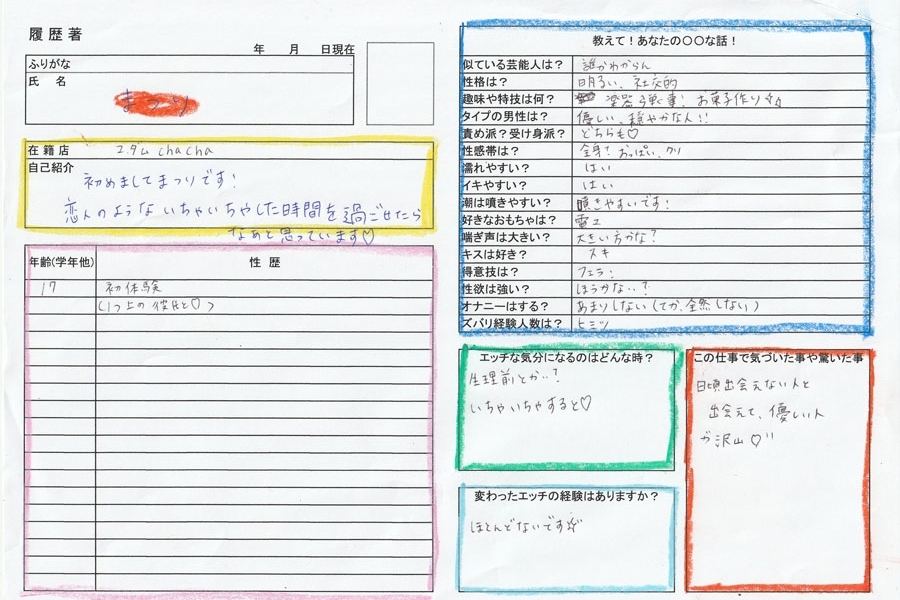 履歴著
年 月 日現在
ふりがな
氏 名
まつり
在籍店 エ.ダム chacha
自己紹介
初めましてまつりです!
恋人のようないちゃいちゃした時間を過ごせたら
なぁと思っています♡
年齢(学年他) 性 歴
17 初体験
(1つ上の彼氏と♡)
教えて!あなたの〇〇な話!
似ている芸能人は? 誰かわからん
性格は? 明るい、社交的
趣味や特技は何? 楽器弾く事! お菓子作り☆
タイプの男性は? 優しい、穏やかな人!!
責め派?受け身派? どちらも♡
性感帯は? 全身? おっぱい、クリ
濡れやすい? はい
イキやすい? はい
潮は噴きやすい? 噴きやすいです!
好きなおもちゃは? 電マ
喘ぎ声は大きい? 大きい方かな?
キスは好き? スキ
得意技は? フェラ!
性欲は強い? ほうかな..?
オナニーはする? あまりしない(てか、全然しない)
ズバリ経験人数は? ヒミツ
エッチな気分になるのはどんな時?
生理前とか..?
いちゃいちゃすると♡
変わったエッチの経験はありますか?
ほとんどないです☆
この仕事で気づいた事や驚いた事
日頃出会えない人と
出会えて、優しい人
が沢山♡!!